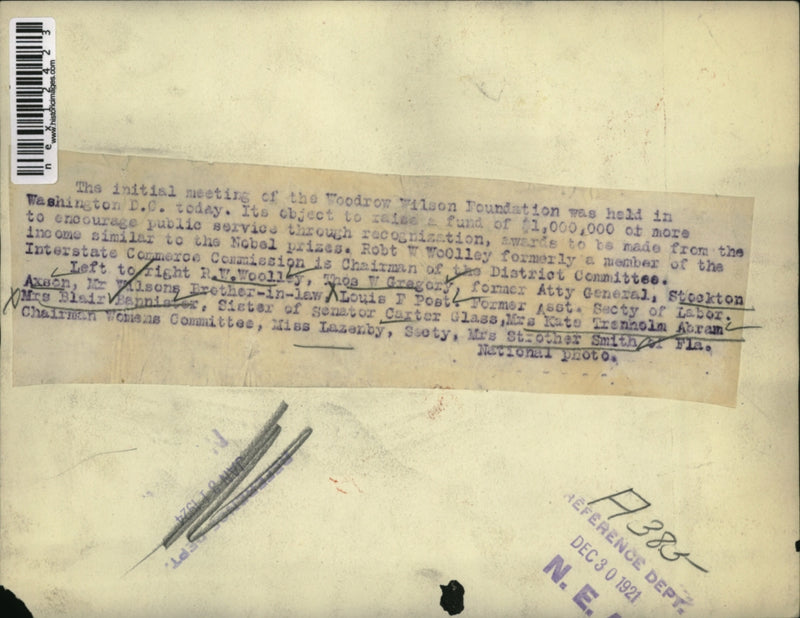 www.historicimages.com
nex12423
The initial meeting of the Woodrow Wilson Foundation was held in
Washington D.C. today. Its object to raise a fund of $1,000,000 or more
to encourage public service through recognition, awards to be made from the
income similar to the Nobel prizes. Robt W Woolley formerly a member of the
Interstate Commerce Commission is Chairman of the District Committee.
Left to right R.W.Woolley, Thos W Gregory, former Atty General, Stockton
Axson, Mr Wilsons Brether-in-law, Louis F Post, Former Asst. Secty of Labor.
Mrs Blair Bannister, Sister of Senator Carter Glass, Mrs Kate Trenholm Abram
Chairman Womens Committee, Miss Lazenby, Secty, Mrs Strother Smith of Fla.
National photo.
JAN 31 1924
DEPT.
A385
REFERENCE DEPT.
DEC 30 1921
N. E.